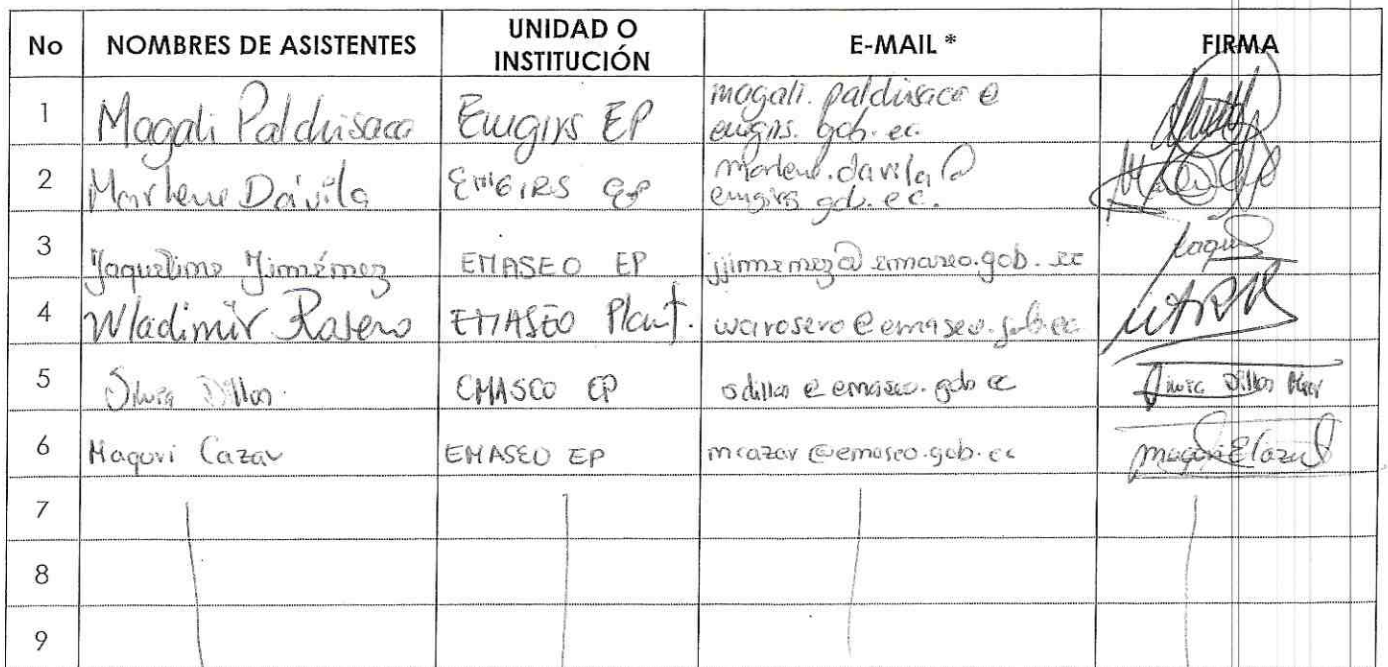 No NOMBRES DE ASISTENTES UNIDAD O INSTITUCIÓN E-MAIL * FIRMA
1 Magali Paldusaca Emgirs EP magali.paldusaca@
emgirs.gob.ec.
2 Marlene Dávila EMGIRS EP marlene.davila@
emgirs gob.ec.
3 Jaqueline Jiménez EMASEO EP jjimenez@emaseo.gob.ec
4 Wladimir Rosero EMASEO Planf. warosero@emaseo.gob.ec
5 Silvia Dillos. EMASEO EP sdillos@emaseo.gob ec
6 Magovi Cazar EMASEO EP mcazar@emaseo.gob.ec
7
8
9